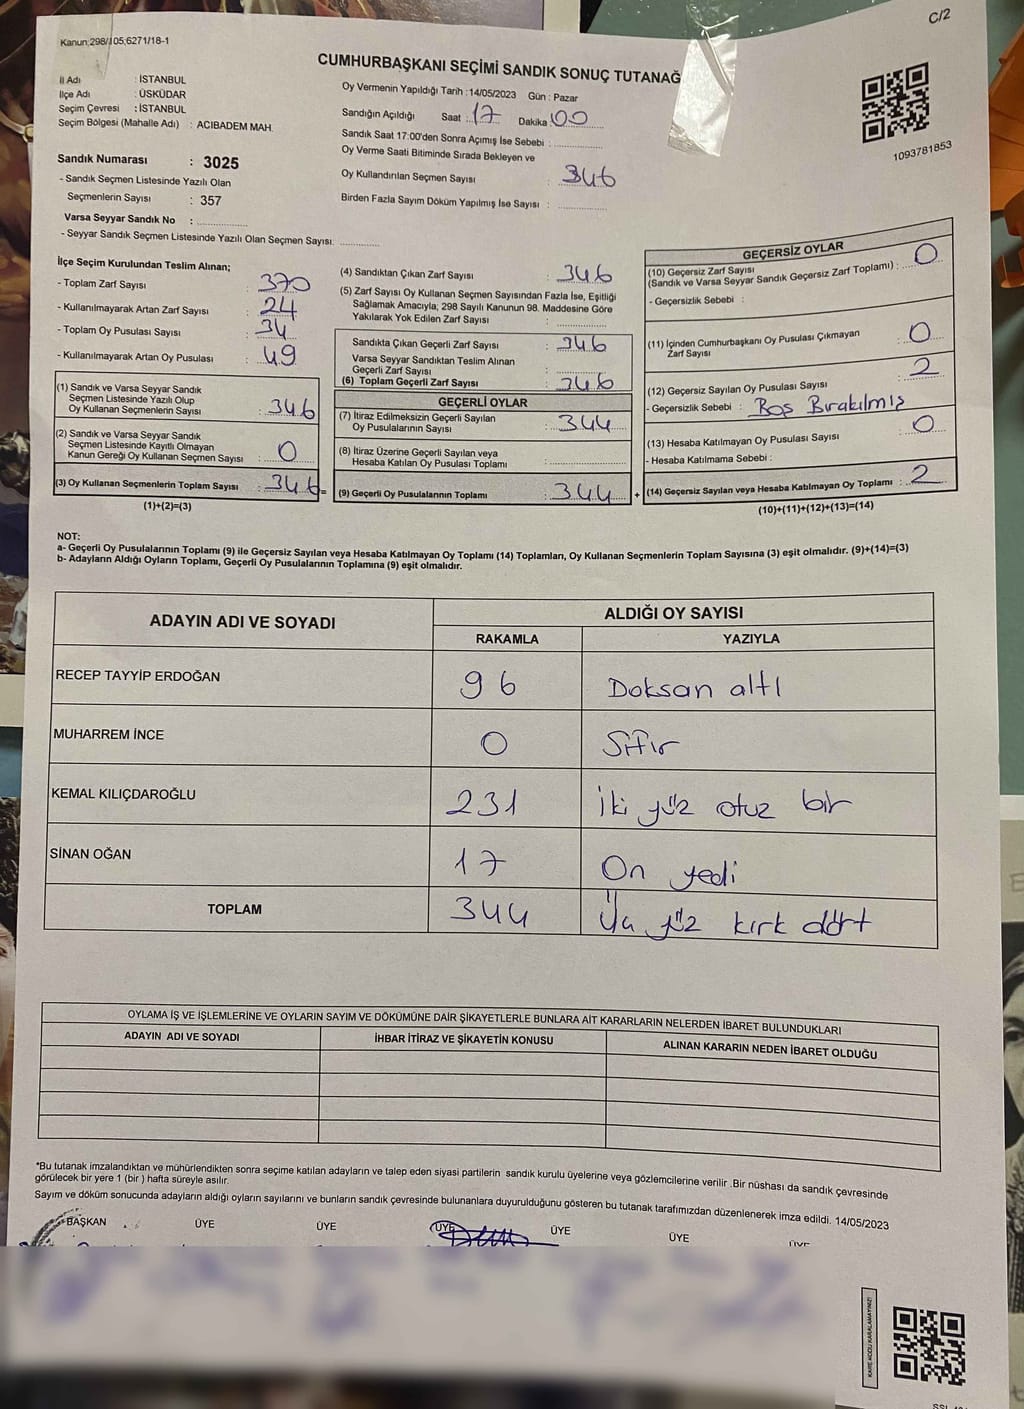 C/2
Kanun:298/105,6271/18-1
CUMHURBAŞKANI SEÇİMİ SANDIK SONUÇ TUTANAĞ
İl Adı : İSTANBUL
İlçe Adı : ÜSKÜDAR
Seçim Çevresi : İSTANBUL
Seçim Bölgesi (Mahalle Adı) : ACIBADEM MAH.
Sandık Numarası : 3025
- Sandık Seçmen Listesinde Yazılı Olan
Seçmenlerin Sayısı : 357
Varsa Seyyar Sandık No :
- Seyyar Sandık Seçmen Listesinde Yazılı Olan Seçmen Sayısı:
Oy Vermenin Yapıldığı Tarih :14/05/2023 Gün : Pazar
Sandığın Açıldığı Saat : 17 Dakika : 00
Sandık Saat 17:00'den Sonra Açımış İse Sebebi :
Oy Verme Saati Bitiminde Sırada Bekleyen ve
Oy Kullandırılan Seçmen Sayısı : 346
Birden Fazla Sayım Döküm Yapılmış İse Sayısı :
1093781853
İlçe Seçim Kurulundan Teslim Alınan;
- Toplam Zarf Sayısı : 370
- Kullanılmayarak Artan Zarf Sayısı : 24
- Toplam Oy Pusulası Sayısı : 34
- Kullanılmayarak Artan Oy Pusulası : 49
(1) Sandık ve Varsa Seyyar Sandık
Seçmen Listesinde Yazılı Olup
Oy Kullanan Seçmenlerin Sayısı : 346
(2) Sandık ve Varsa Seyyar Sandık
Seçmen Listesinde Kayıtlı Olmayan
Kanun Gereği Oy Kullanan Seçmen Sayısı : 0
(3) Oy Kullanan Seçmenlerin Toplam Sayısı : 346 =
(1)+(2)=(3)
(4) Sandıktan Çıkan Zarf Sayısı : 346
(5) Zarf Sayısı Oy Kullanan Seçmen Sayısından Fazla İse, Eşitliği
Sağlamak Amacıyla; 298 Sayılı Kanunun 98. Maddesine Göre
Yakılarak Yok Edilen Zarf Sayısı :
Sandıkta Çıkan Geçerli Zarf Sayısı : 346
Varsa Seyyar Sandıktan Teslim Alınan
Geçerli Zarf Sayısı :
(6) Toplam Geçerli Zarf Sayısı : 346
GEÇERLİ OYLAR
(7) İtiraz Edilmeksizin Geçerli Sayılan
Oy Pusulalarının Sayısı : 344
(8) İtiraz Üzerine Geçerli Sayılan veya
Hesaba Katılan Oy Pusulası Toplamı :
(9) Geçerli Oy Pusulalarının Toplamı : 344 +
GEÇERSİZ OYLAR
(10) Geçersiz Zarf Sayısı
(Sandık ve Varsa Seyyar Sandık Geçersiz Zarf Toplamı) : 0
- Geçersizlik Sebebi :
(11) İçinden Cumhurbaşkanı Oy Pusulası Çıkmayan
Zarf Sayısı : 0
(12) Geçersiz Sayılan Oy Pusulası Sayısı : 2
- Geçersizlik Sebebi : Boş Bırakılmış
(13) Hesaba Katılmayan Oy Pusulası Sayısı : 0
- Hesaba Katılmama Sebebi :
(14) Geçersiz Sayılan veya Hesaba Katılmayan Oy Toplamı : 2
(10)+(11)+(12)+(13)=(14)
NOT:
a- Geçerli Oy Pusulalarının Toplamı (9) ile Geçersiz Sayılan veya Hesaba Katılmayan Oy Toplamı (14) Toplamları, Oy Kullanan Seçmenlerin Toplam Sayısına (3) eşit olmalıdır. (9)+(14)=(3)
b- Adayların Aldığı Oyların Toplamı, Geçerli Oy Pusulalarının Toplamına (9) eşit olmalıdır.
ADAYIN ADI VE SOYADI ALDIĞI OY SAYISI
RAKAMLA YAZIYLA
RECEP TAYYİP ERDOĞAN 96 Doksan altı
MUHARREM İNCE 0 Sıfır
KEMAL KILIÇDAROĞLU 231 İki yüz otuz bir
SİNAN OĞAN 17 On yedi
TOPLAM 344 yüz kırk dört
OYLAMA İŞ VE İŞLEMLERİNE VE OYLARIN SAYIM VE DÖKÜMÜNE DAİR ŞİKAYETLERLE BUNLARA AİT KARARLARIN NELERDEN İBARET BULUNDUKLARI
ADAYIN ADI VE SOYADI İHBAR İTİRAZ VE ŞİKAYETİN KONUSU ALINAN KARARIN NEDEN İBARET OLDUĞU
*Bu tutanak imzalandıktan ve mühürlendikten sonra seçime katılan adayların ve talep eden siyasi partilerin sandık kurulu üyelerine veya gözlemcilerine verilir .Bir nüshası da sandık çevresinde
görülecek bir yere 1 (bir ) hafta süreyle asılır.
Sayım ve döküm sonucunda adayların aldığı oyların sayılarını ve bunların sandık çevresinde bulunanlara duyurulduğunu gösteren bu tutanak tarafımızdan düzenlenerek imza edildi. 14/05/2023
BAŞKAN ÜYE ÜYE ÜYE ÜYE ÜYE ÜYE
KARE KODU KARALAMAYINIZ!